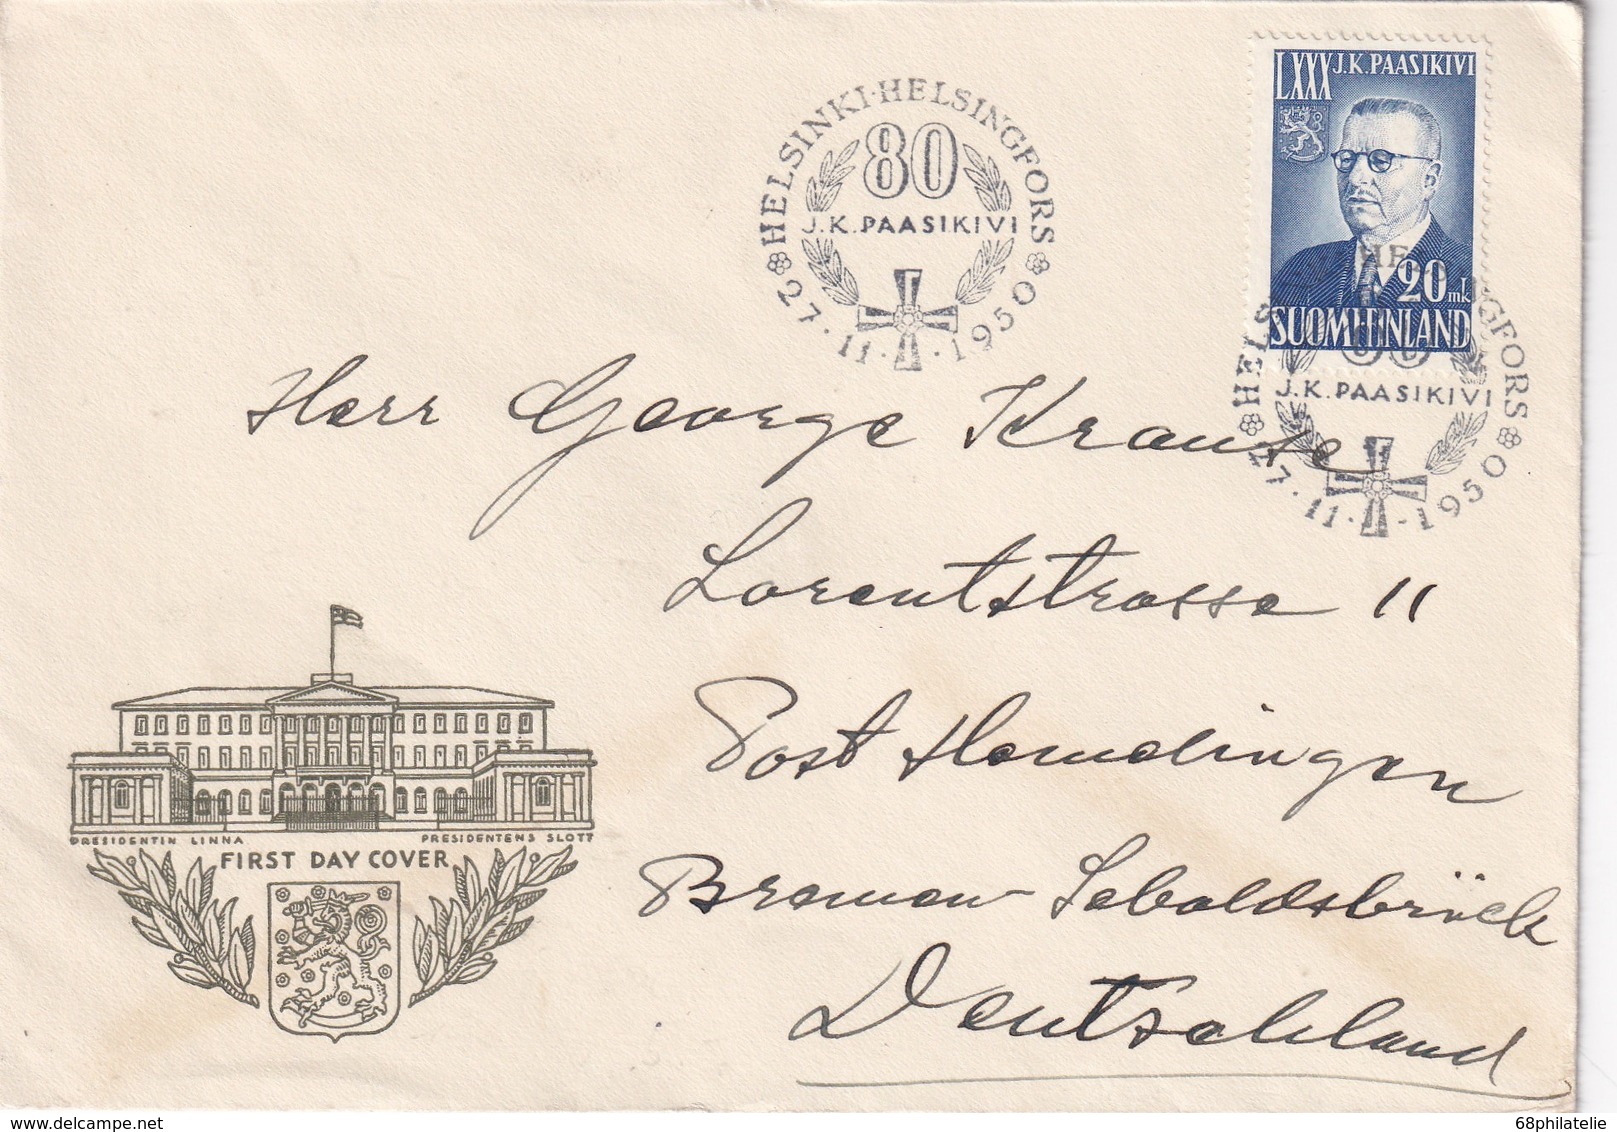 HELSINKI·HELSINGFORS
80
J.K.PAASIKIVI
27.11.-1950
LXXX J.K.PAASIKIVI
20 mk
SUOMI FINLAND
HELSINKI·HELSINGFORS
80
J.K.PAASIKIVI
27.11.-1950
Herr George Krause
Lorentstrasse 11
Post Hemelingen
Bremen-Sebaldsbrück
Deutschland
PRESIDENTIN LINNA PRESIDENTENS SLOTT
FIRST DAY COVER
68philatelie